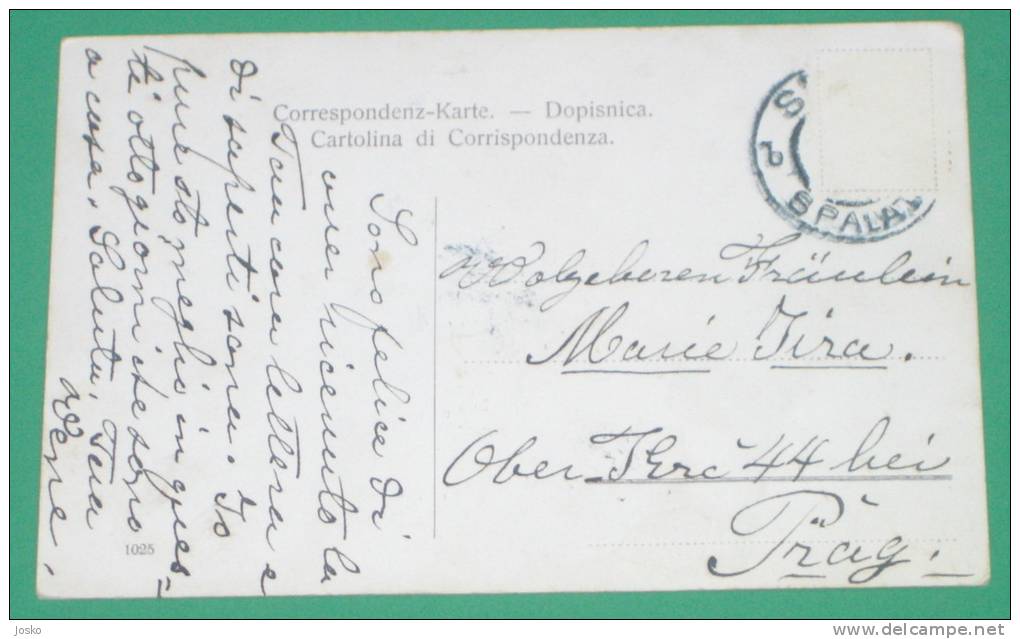 Correspondenz-Karte. — Dopisnica.
Cartolina di Corrispondenza.
SPALA
Sono felice di
aver ricevuto la
Tua cara lettera e
di saperti sana. Io
pure sto meglio in ques=
ti otto giorni che sono
a casa. Saluti, Tua
Wolgeboren Fräulein
Marie Jira.
Ober Krc 44 bei
Prag.
1025
Josko
delcampe.net